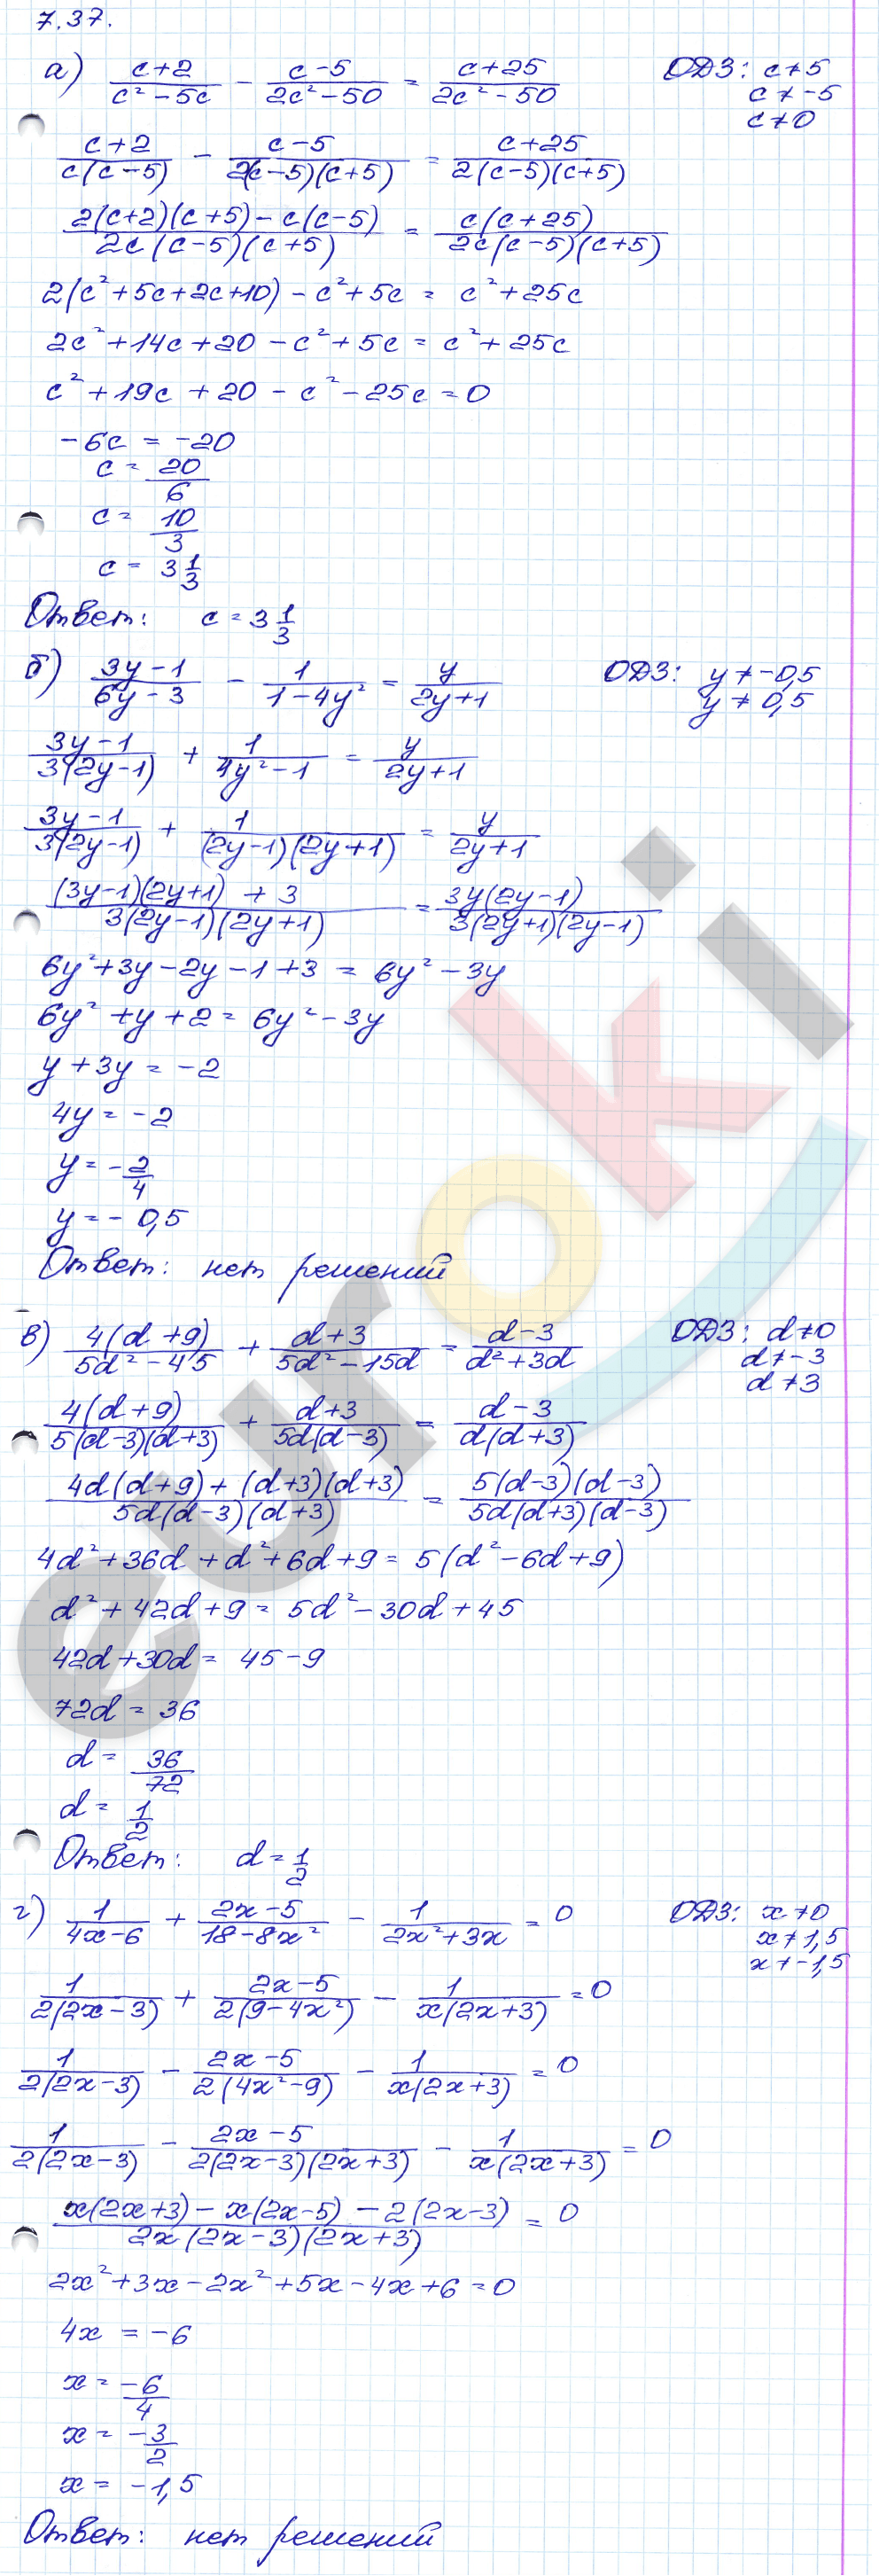 7.37.
а) (c+2)/(c²−5c) − (c−5)/(2c²−50) = (c+25)/(2c²−50) ОДЗ: c≠5
c≠−5
c≠0
(c+2)/(c(c−5)) − (c−5)/(2(c−5)(c+5)) = (c+25)/(2(c−5)(c+5))
(2(c+2)(c+5)−c(c−5))/(2c(c−5)(c+5)) = (c(c+25))/(2c(c−5)(c+5))
2(c²+5c+2c+10)−c²+5c = c²+25c
2c²+14c+20−c²+5c = c²+25c
c²+19c+20−c²−25c=0
−6c = −20
c = 20/6
c = 10/3
c = 3 1/3
Ответ: c = 3 1/3
б) (3y−1)/(6y−3) − 1/(1−4y²) = y/(2y+1) ОДЗ: y≠−0,5
y≠0,5
(3y−1)/(3(2y−1)) + 1/(4y²−1) = y/(2y+1)
(3y−1)/(3(2y−1)) + 1/((2y−1)(2y+1)) = y/(2y+1)
((3y−1)(2y+1)+3)/(3(2y−1)(2y+1)) = (3y(2y−1))/(3(2y+1)(2y−1))
6y²+3y−2y−1+3 = 6y²−3y
6y²+y+2 = 6y²−3y
y+3y = −2
4y = −2
y = −2/4
y = −0,5
Ответ: нет решений
в) (4(d+9))/(5d²−45) + (d+3)/(5d²−15d) = (d−3)/(d²+3d) ОДЗ: d≠0
d≠−3
d≠3
(4(d+9))/(5(d−3)(d+3)) + (d+3)/(5d(d−3)) = (d−3)/(d(d+3))
(4d(d+9)+(d+3)(d+3))/(5d(d−3)(d+3)) = (5(d−3)(d−3))/(5d(d+3)(d−3))
4d²+36d+d²+6d+9 = 5(d²−6d+9)
d²+42d+9 = 5d²−30d+45
42d+30d = 45−9
72d = 36
d = 36/72
d = 1/2
Ответ: d = 1/2
г) 1/(4x−6) + (2x−5)/(18−8x²) − 1/(2x²+3x) = 0 ОДЗ: x≠0
x≠1,5
x≠−1,5
1/(2(2x−3)) + (2x−5)/(2(9−4x²)) − 1/(x(2x+3)) = 0
1/(2(2x−3)) − (2x−5)/(2(4x²−9)) − 1/(x(2x+3)) = 0
1/(2(2x−3)) − (2x−5)/(2(2x−3)(2x+3)) − 1/(x(2x+3)) = 0
(x(2x+3)−x(2x−5)−2(2x−3))/(2x(2x−3)(2x+3)) = 0
2x²+3x−2x²+5x−4x+6=0
4x = −6
x = −6/4
x = −3/2
x = −1,5
Ответ: нет решений
euroki